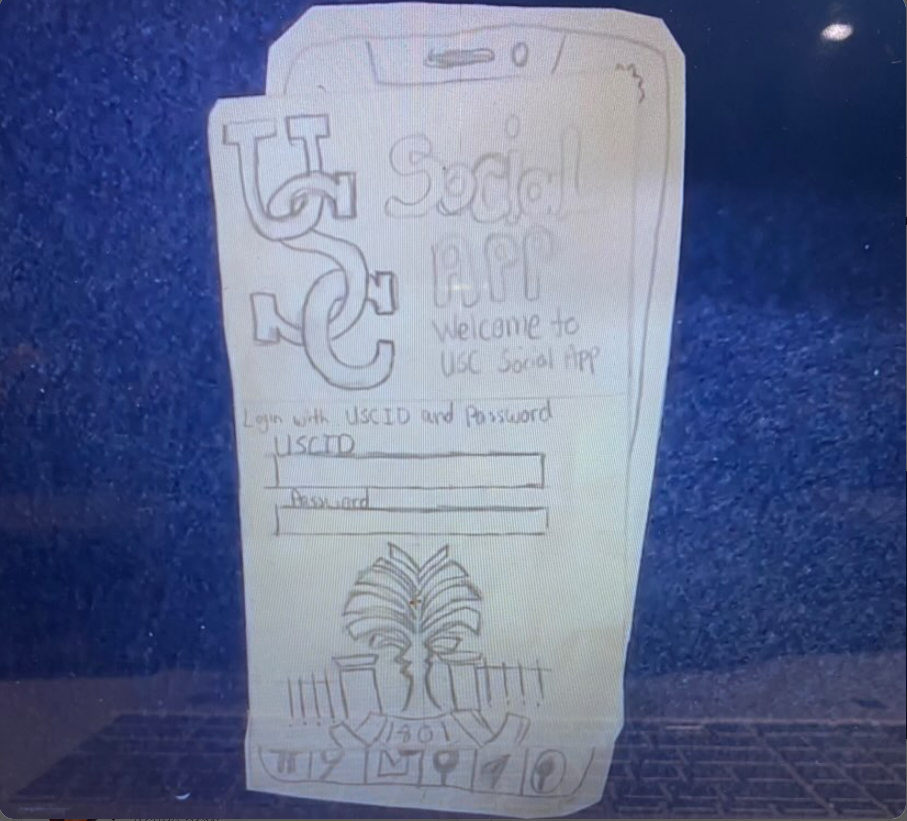 USC
Social
APP
Welcome to
USC Social App
Login with USCID and Password
USCID
Password
1801